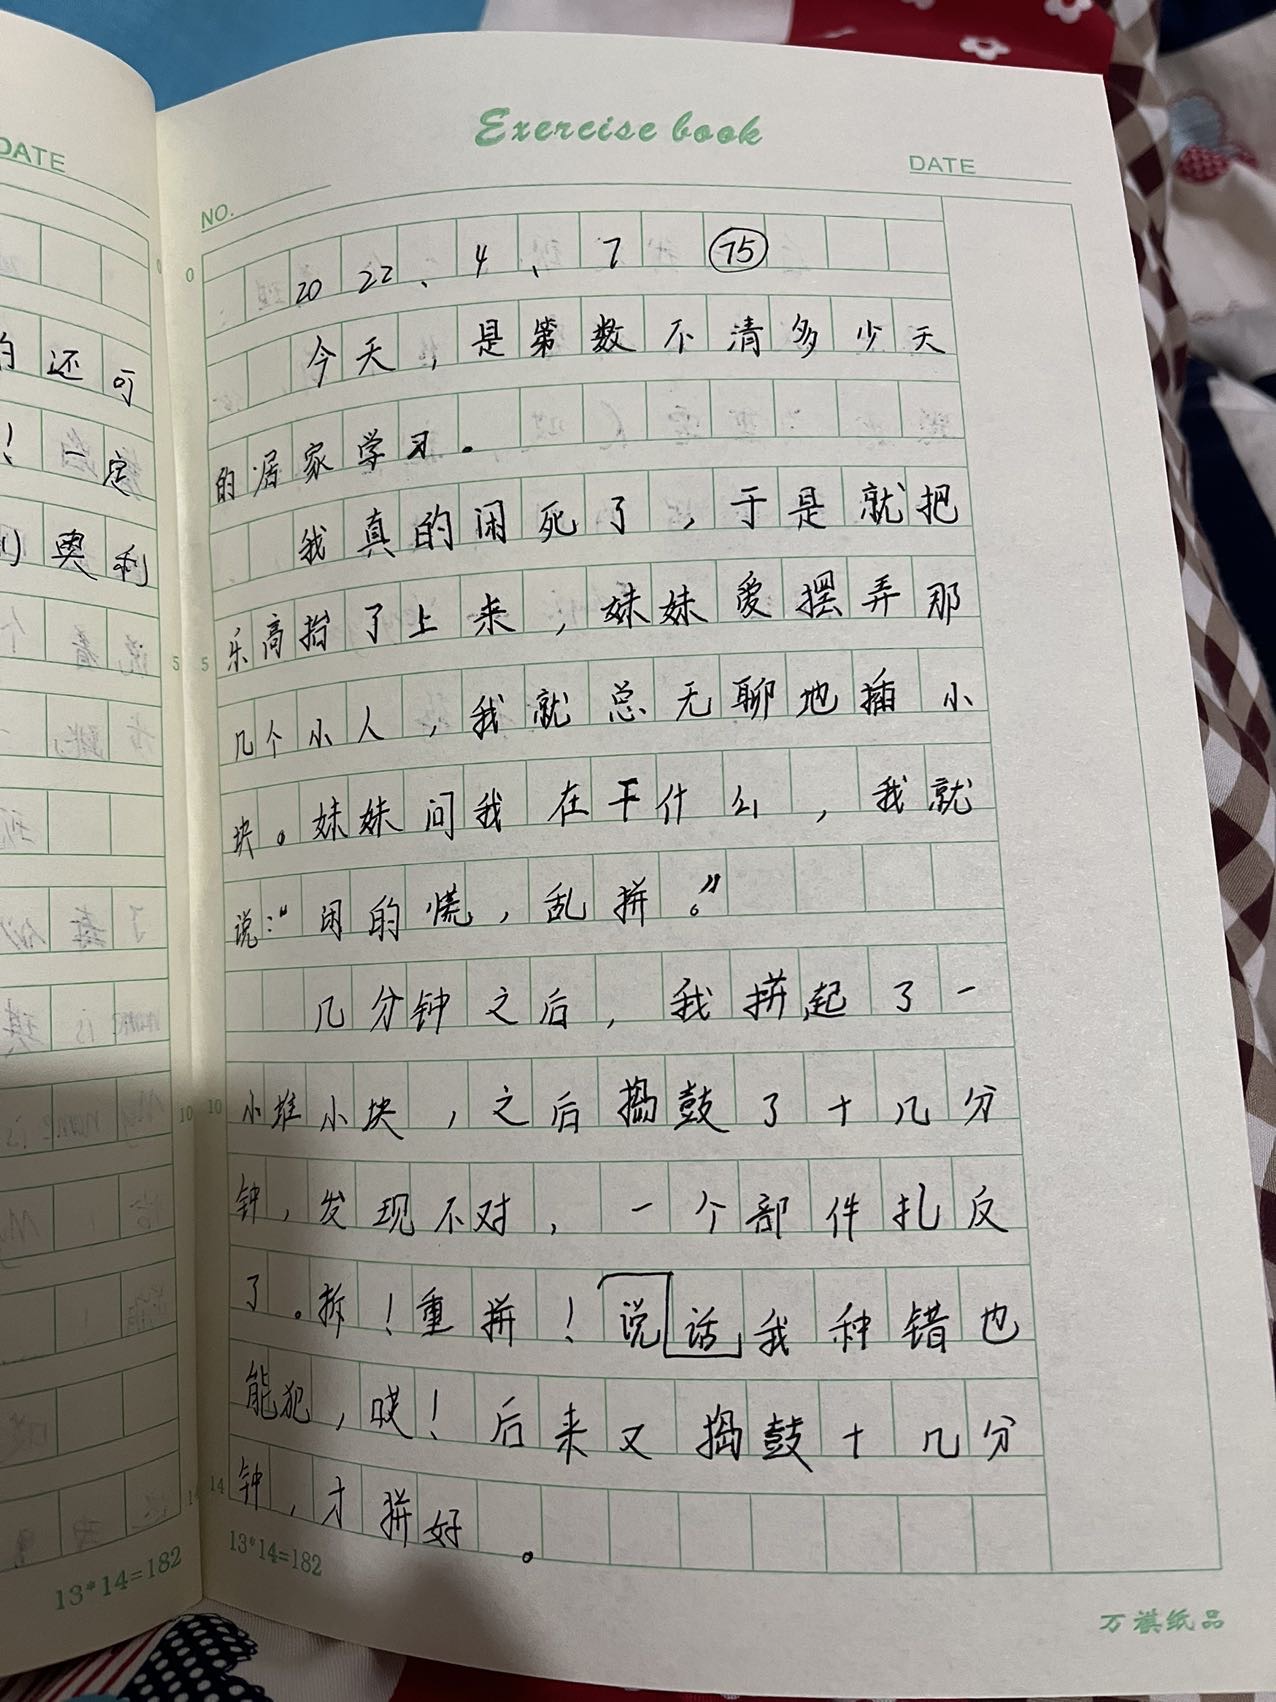 Exercise book
DATE
NO.
2022、4、7 75
今天，是第数不清多少天
的居家学习。
我真的闲死了，于是就把
乐高抬了上来，妹妹爱摆弄那
几个小人，我就总无聊地插小
块。妹妹问我在干什么，我就
说：“闲的慌，乱拼。”
几分钟之后，我拼起了一
小堆小块，之后捣鼓了十几分
钟，发现不对，一个部件扎反
了。拆！重拼！说话我种错也
能犯，哎！后来又捣鼓十几分
钟，才拼好。
0
5
10
14
13*14=182
万祺纸品
DATE
的还可
！一定
奥利
0
5
10
13*14=182